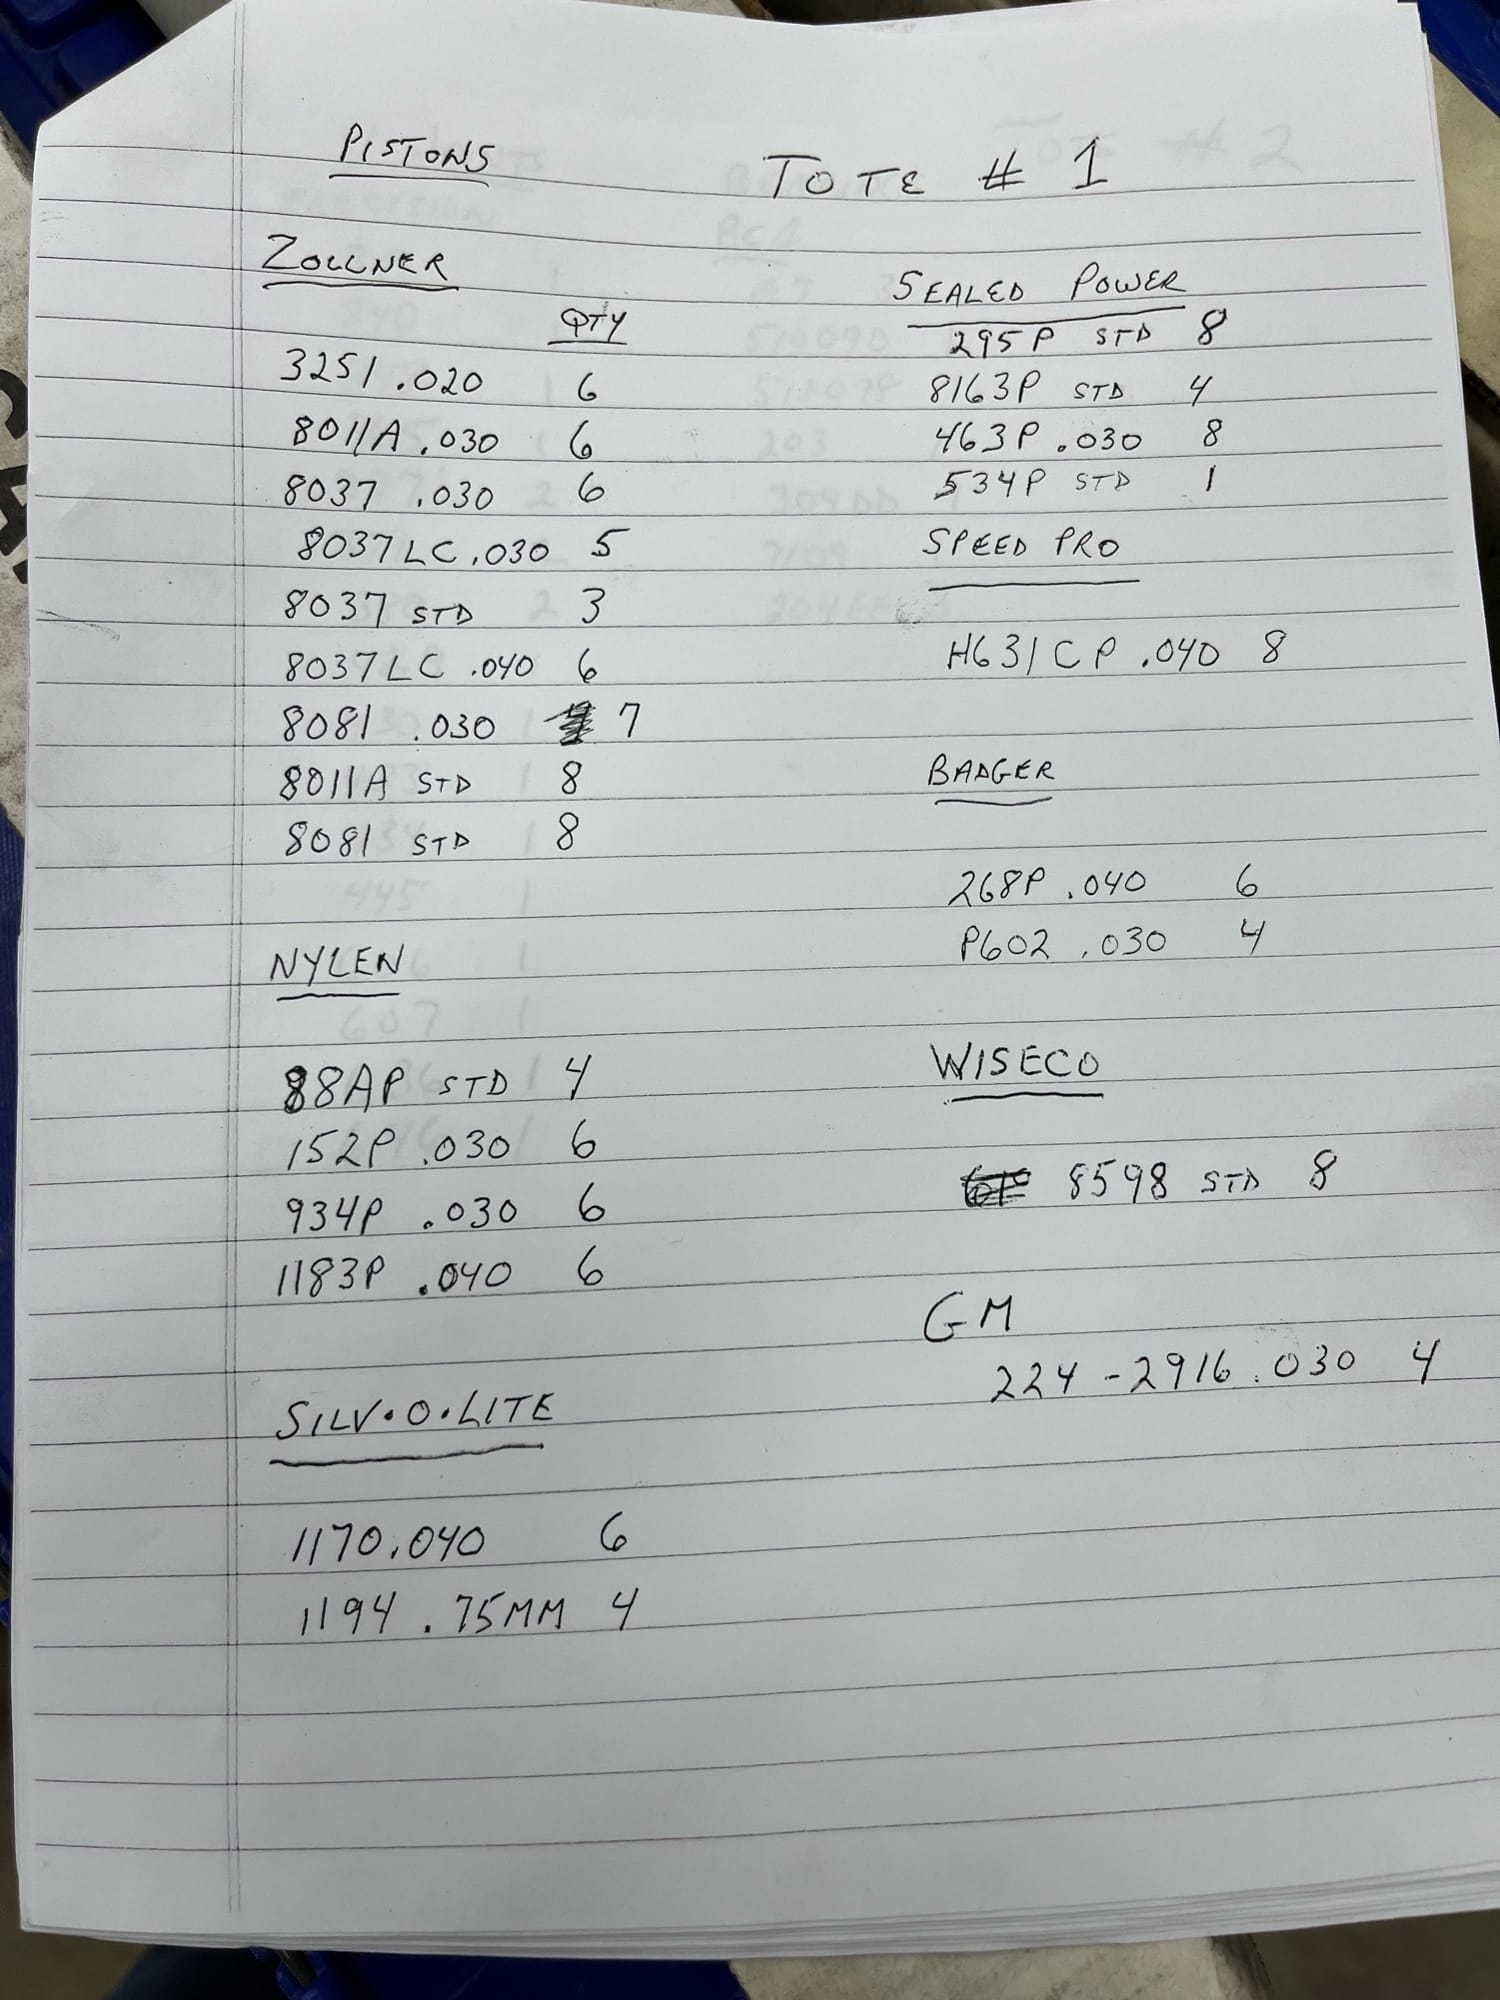 PISTONS
TOTE # 1
ZOLLNER
QTY
3251 .020 6
8011A .030 6
8037 .030 6
8037LC .030 5
8037 STD 3
8037LC .040 6
8081 .030 7
8011A STD 8
8081 STD 8
NYLEN
88AP STD 4
152P .030 6
934P .030 6
1183P .040 6
SILV.O.LITE
1170 .040 6
1194 .75MM 4
SEALED POWER
295P STD 8
8163P STD 4
463P .030 8
534P STD 1
SPEED PRO
H631CP .040 8
BADGER
268P .040 6
P602 .030 4
WISECO
8598 STD 8
GM
224-2916 .030 4